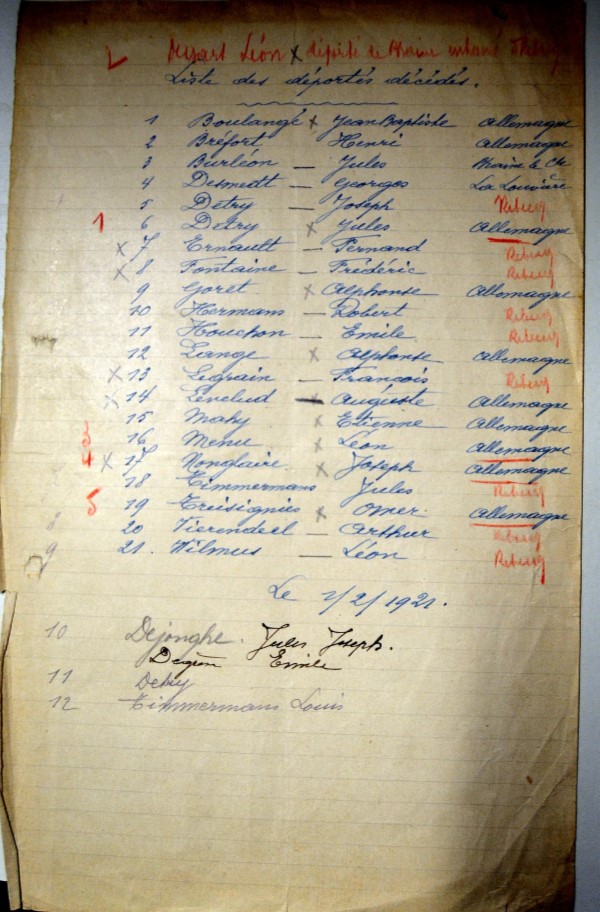 2 Dessart Léon x déporté de Braine enterré Rebecq
Liste des déportés décédés.
1 Boulangé x Jean Baptiste Allemagne
2 Bréfort Henri Allemagne
3 Burléon — Jules Braine le Cte
4 Desmedt — Georges La Louvière
5 Detry — Joseph Rebecq
1 6 Detry x Jules Allemagne
x 7 Ernault — Fernand Rebecq
x 8 Fontaine — Frédéric Rebecq
9 Goret x Alphonse Allemagne
10 Hermans — Robert Rebecq
11 Houchon — Emile Rebecq
12 Lange x Alphonse Allemagne
x 13 Legrain — François Rebecq
x 14 Levelud — Auguste Allemagne
15 Mahy x Etienne Allemagne
3 16 Menu x Léon Allemagne
4 x 17 Nonclaire x Joseph Allemagne
18 Timmermans Jules Rebecq
5 19 Treisignies x Omer Allemagne
8 20 Vierendeel — Arthur Rebecq
9 21. Wilmus — Léon Rebecq
Le 7/2/1921.
10 Dejonghe. Jules Joseph.
Emile
11 Detry
12 Timmermans Louis